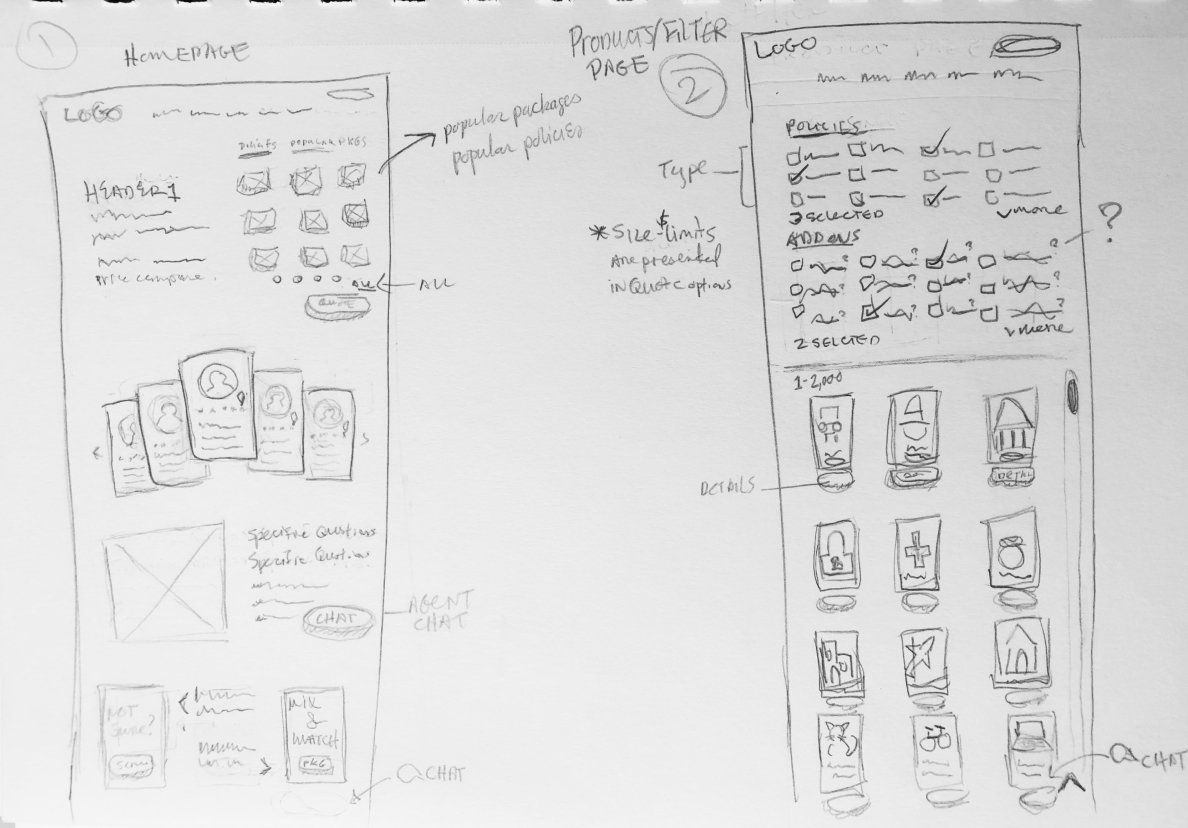 1
HOMEPAGE
LOGO
POLICIES POPULAR PKGS
HEADER 1
Price compare.
ALL
QUOTE
popular packages
popular policies
ALL
Specific Questions
Specific Questions
CHAT
AGENT
CHAT
NOT
Sure?
MIX
&
MATCH
PKG
CHAT
PRODUCTS/FILTER
PAGE
2
LOGO
POLICIES
Type
3 SELECTED
more
ADD ONS
?
? ? ?
? ? ?
? ? ?
2 SELCTED
more
* Size $ limits
Are presented
in Quote options
1-2,000
DETAILS
DETAIL
CHAT